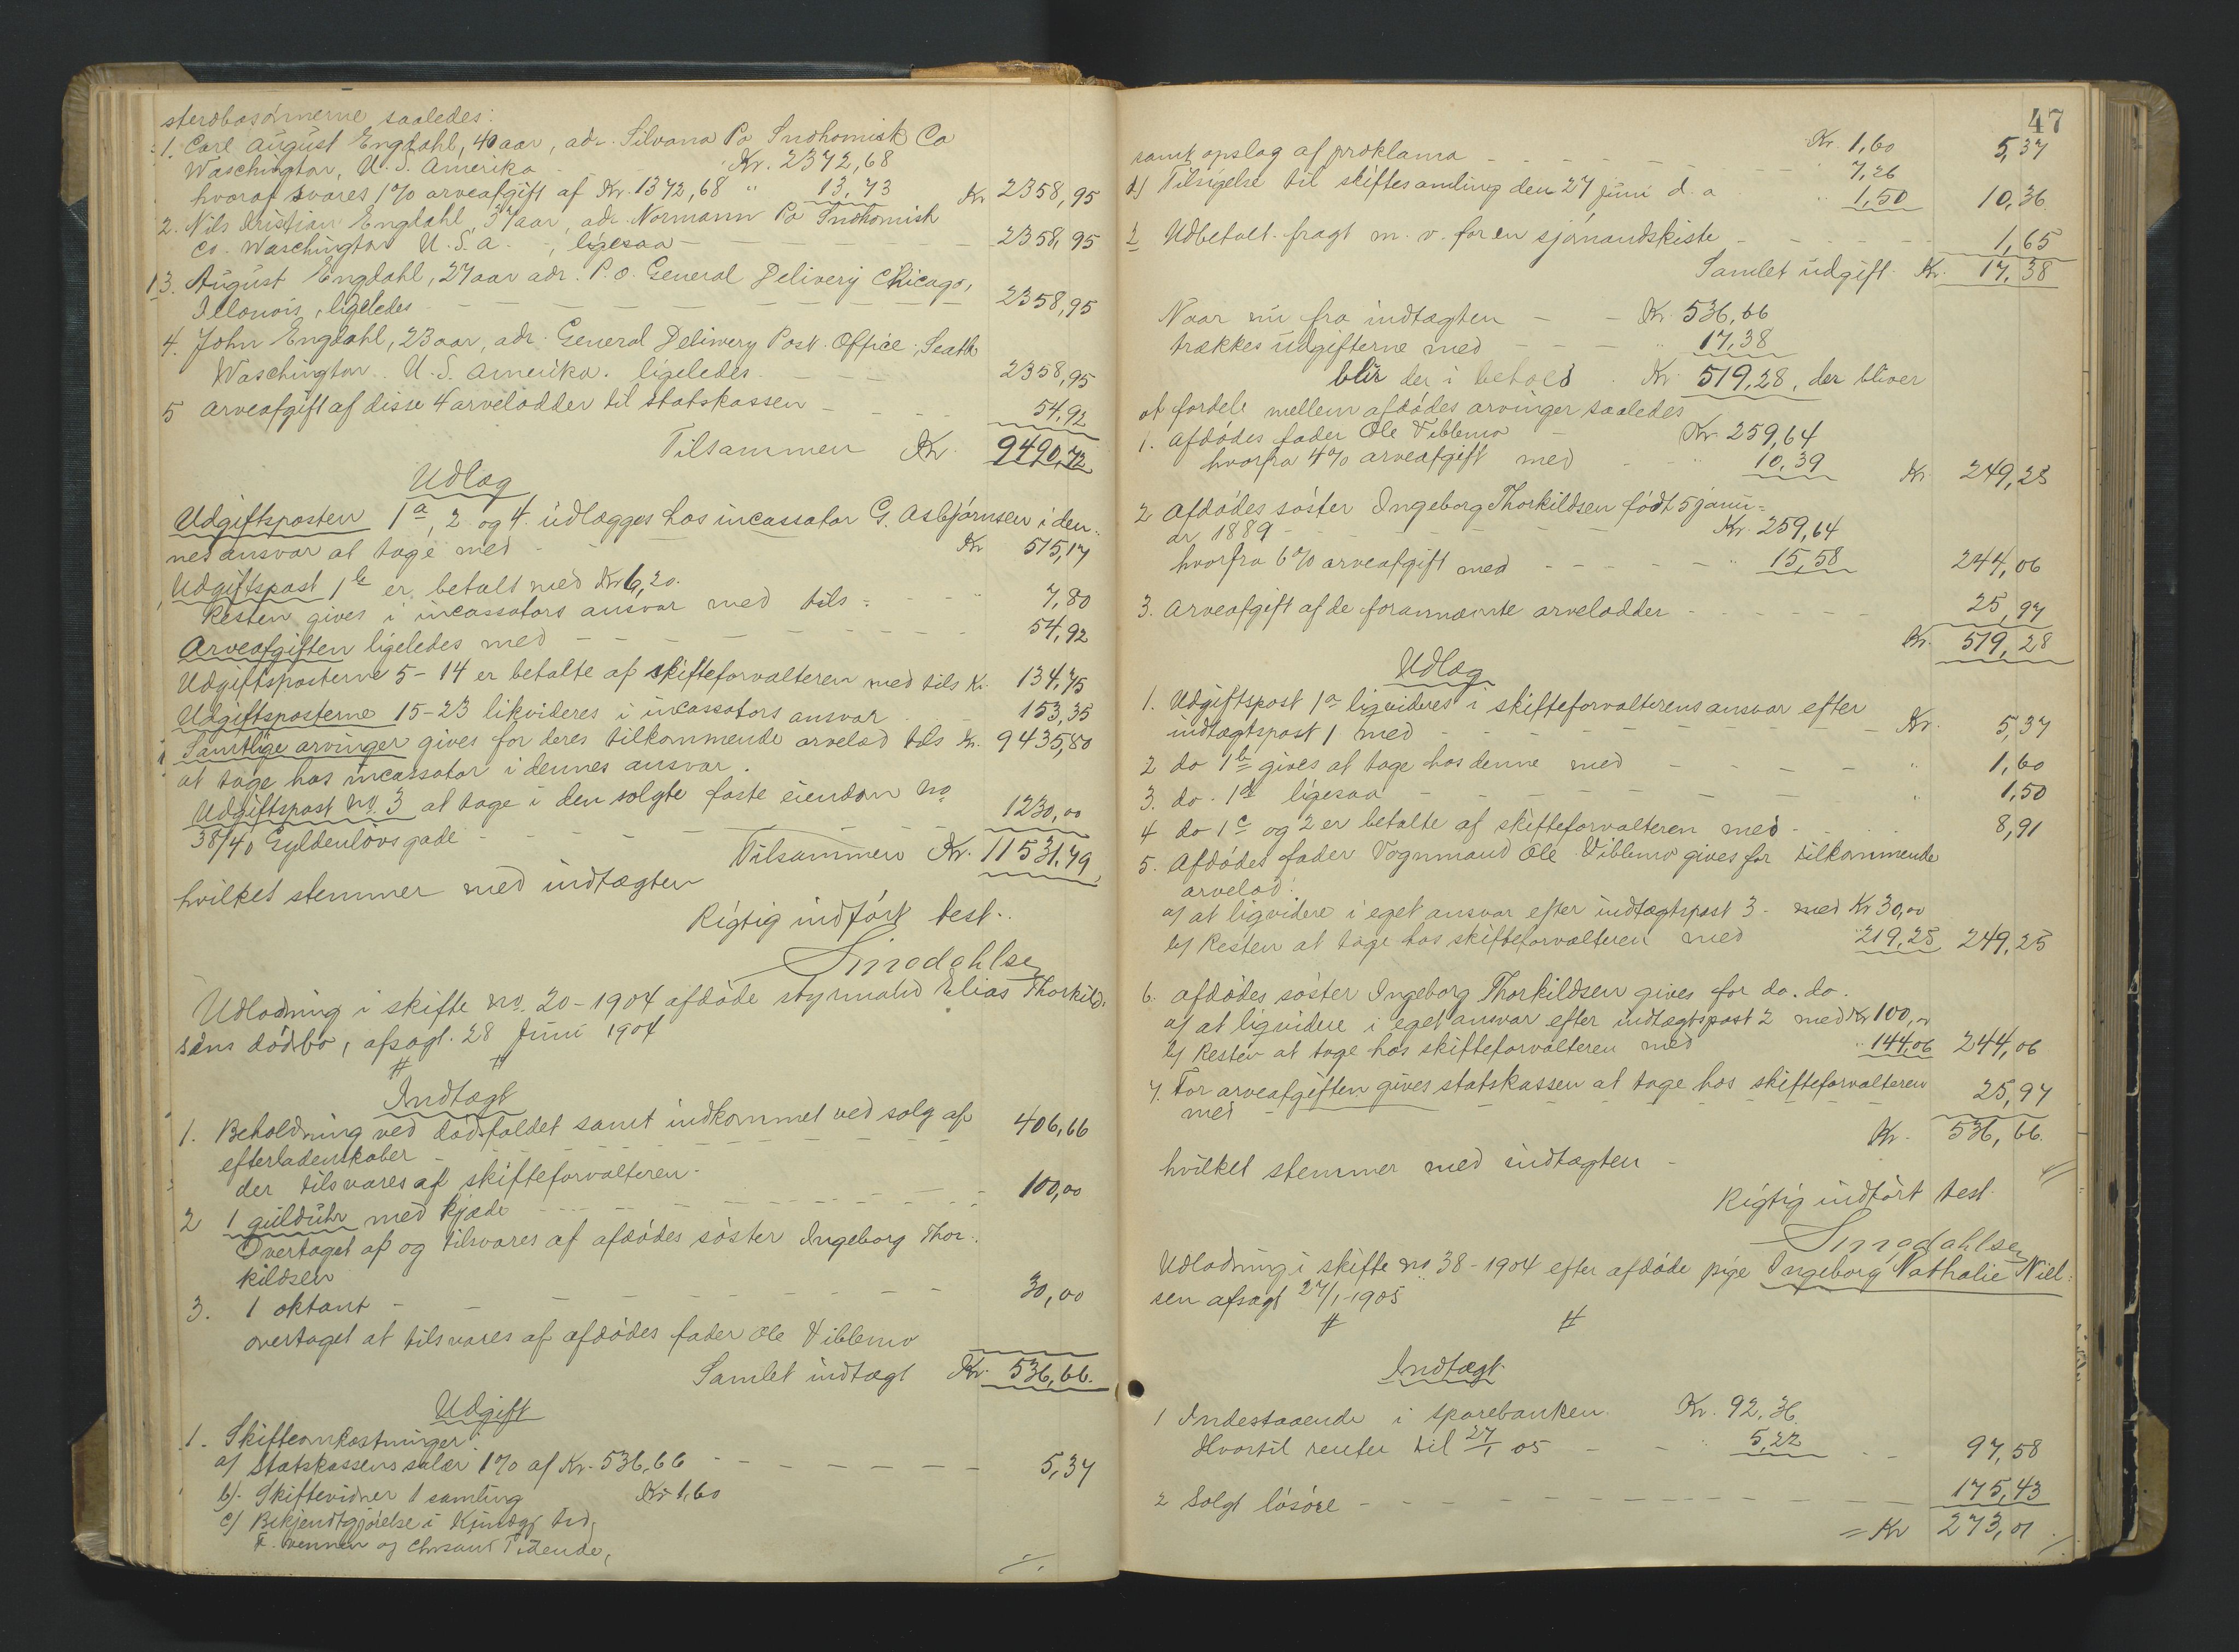 sterdbosönnerne saaledes:
1. Carl August Engdahl, 40 aar, adr. Silvana Po Snohomisk Co
Waschington, U. S. Amerika - Kr. 2372,68
hvoraf svares 1% arveafgift af Kr. 1372,68 " 13,73 Kr 2358,95
2. Nils Kristian Engdahl, 37 aar, adr. Normann Po Snohomish
Co. Waschington U. S. a. -, ligesaa - 2358,95
3. August Engdahl, 27 aar adr. P. O. General Delivery Chicago,
Illonois, ligeledes - 2358,95
4. John Engdahl, 23 aar, adr. General Deliwery Post Office, Seatle
Waschington. U. S. Amerika. ligeledes - 2358,95
5 Arveafgift af disse 4 arvelodder til statskassen - 54,92
Tilsammen Kr. 9490,72
Udlæg
Udgiftsposten 1a, 2 og 4 udlægges hos incassator G. Asbjörnsen i den-
nes ansvar at tage med - Kr 515,17
Udgiftspost 1b er betalt med Kr 6,20.
Resten gives i incassators ansvar med tils: - 7,80
Arveafgiften ligeledes med - 54,92
Udgiftsposterne 5-14 er betalte af skifteforvalteren med tils Kr. 134,75
Udgiftsposterne 15-23 likvideres i incassators ansvar - 153,35
Samtlige arvinger gives for deres tilkommende arvelod tils Kr. 9435,80
at tage hos incassator i dennes ansvar.
Udgiftspost no. 3 at tage i den solgte faste eiendom no
38/40 Gyldenlövsgade - 1230,00
Tilsammen Kr. 11531,79
hvilket stemmer med indtægten
Rigtig indfört test..
Udlodning i skifte no. 20-1904 afdöde styrmand Elias Thorkild-
sens dödsbo, afsagt 28 Juni 1904
Indtægt
1. Beholdning ved dödsfaldet samt indkommet ved salg af
efterladenskaber - 406,66
der tilsvares af skifteforvalteren -
2 1 guldUhr med kjæde - 100,00
Overtaget af og tilsvares af afdödes söster Ingeborg Thor-
kildsen
3. 1 oktant - 30,00
overtaget at tilsvares af afdödes fader Ole Vibbemo
Samlet indtægt Kr. 536,66.
Udgift
1. Skifteomkostninger:
a) Statskassens salær 1% af Kr. 536,66 - 5,37
b). Skiftevidner 1 samling Kr 1,60
c) Bekjendtgjörelse i Kundgj. tid,
F. vennen og Chrsand Tidende,
47
Kr. 1,60 5,37
samt opslag af proklama - 7,26
d) Tilsigelse til skiftesamling den 27 juni d. a " 1,50 10,36
2 Udbetalt fragt m. v. for en sjömandskiste - 1,65
Samlet udgift Kr. 17,38
Naar nu fra indtægten - Kr. 536,66
trækkes udgifterne med - " 17,38
blir der i behold Kr. 519,28, der bliver
at fordele mellem afdödes arvinger saaledes
1. Afdödes fader Ole Vibbemo - Kr. 259,64
hvorfra 4% arveafgift med - 10,39 Kr. 249,25
2 Afdödes söster Ingeborg Thorkildsen födt 5 janu-
ar 1889 - Kr. 259,64
hvorfra 6% arveafgift med - 15,58 244,06
3. Arveafgift af de forannævnte arvelodder - 25,97
Kr. 519,28
Udlæg
1. Udgiftspost 1a ligvideres i skifteforvalterens ansvar efter
indtægtspost 1 med - Kr. 5,37
2 do 1b gives at tage hos denne med - 1,60
3. do - 1d ligesaa - 1,50
4 do 1c og 2 er betalte af skifteforvalteren med - 8,91
5. Afdödes fader Vognmand Ole Vibbemo gives for tilkommende
arvelod:
a) at ligvidere i eget ansvar efter indtægtspost 3 - med Kr 30,00
b) Resten at tage hos skifteforvalteren med " 219,25 249,25
6. Afdödes söster Ingeborg Thorkildsen gives for do. do.
a) at ligvidere i eget ansvar efter indtægtspost 2 med Kr 100,00
b) Resten at tage hos skifteforvalteren med " 144,06 244,06
7. For arveafgiften gives statskassen at tage hos skifteforvalteren
med - 25,97
Kr. 536,66.
hvilket stemmer med indtægten -
Rigtig indfört test.
Udlodning i skifte no 38-1904 efter afdöde pige Ingeborg Nathalie Niel-
sen afsagt 27/1-1905
Indtægt
1 Indestaaende i sparebanken. Kr. 92,36
Hvortil renter til 27/1 05 - 5,22 - 97,58
2 Solgt lösöre - 175,43
= Kr 273,01